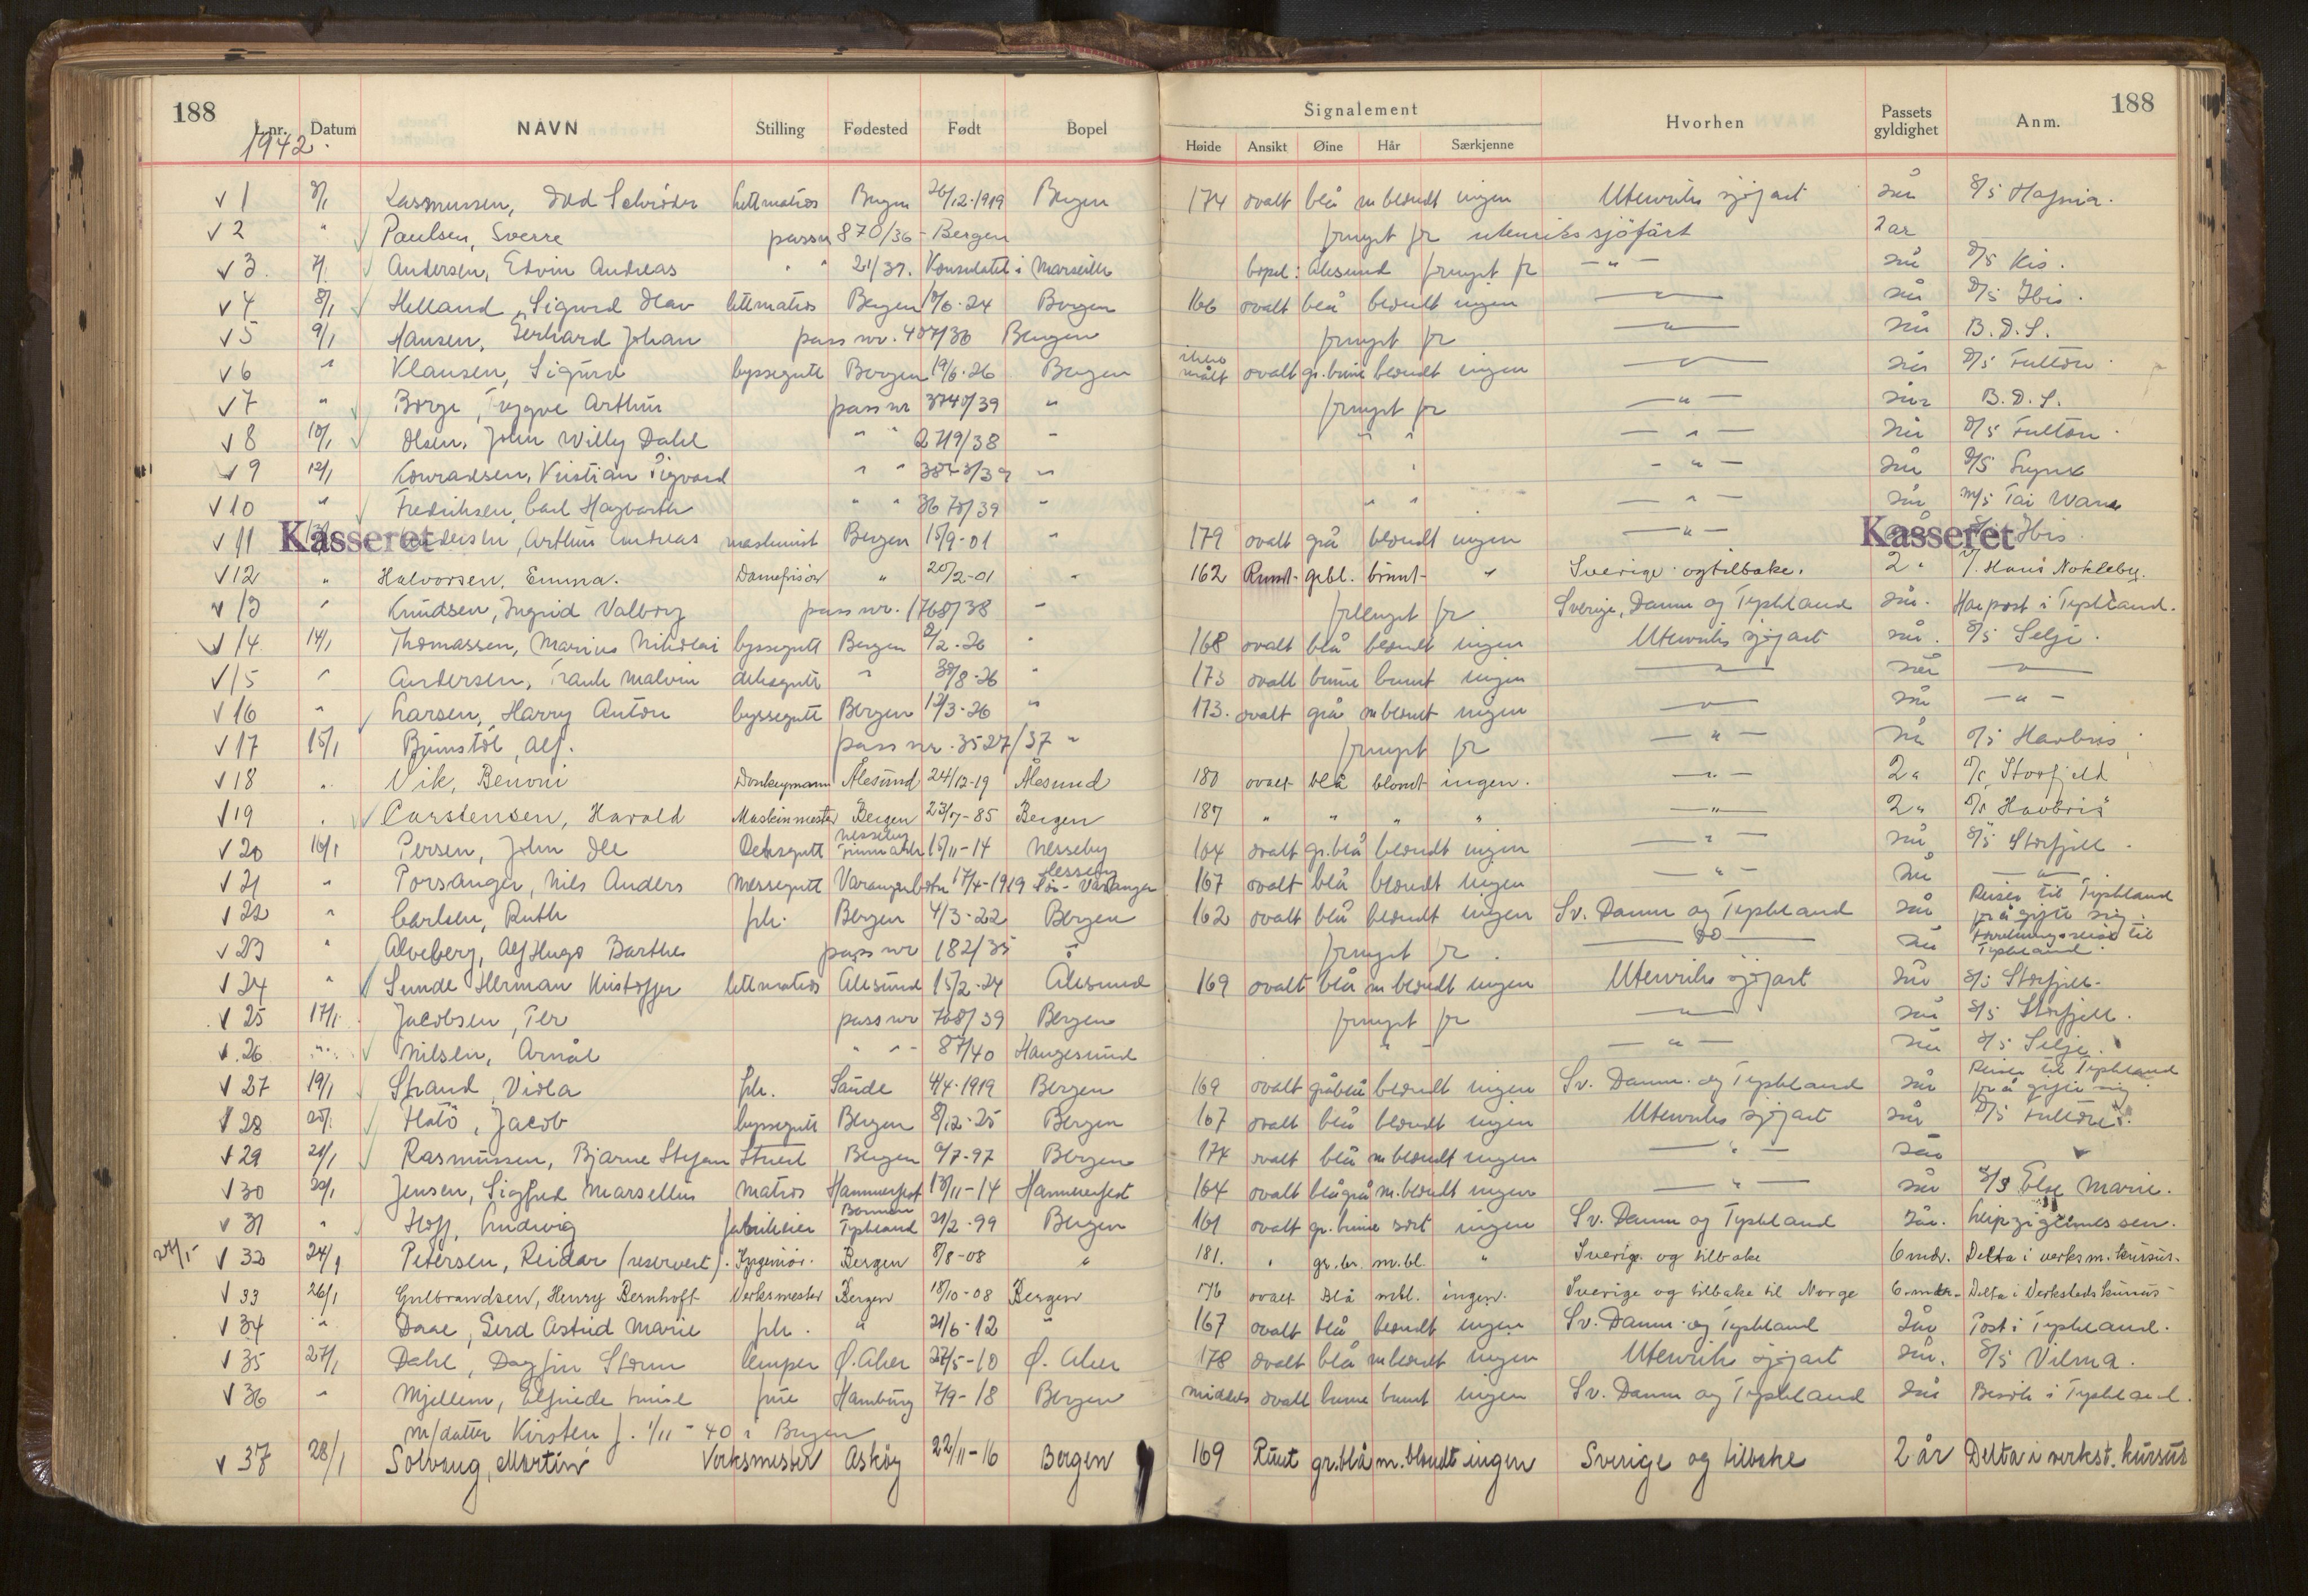 188
L.nr. Datum NAVN Stilling Fødested Født Bopel
1942.
Signalement
Høide Ansikt Øine Hår Særkjenne Hvorhen Passets gyldighet Anm.
188
v 1 Rasmussen, Odd lettmatros Bergen 26/12-1919 Bergen 174 ovalt blå m blondt ingen Utenriks sjøfart 2år D/S Hafnia.
v 2 " Paulsen, Sverre passnr 870/36 - Bergen fornyet for utenriks sjöfart 2 år
v 3. Andersen, Edvin Andreas " " 21/37. Konsulatet i Marseille bopel: Ålesund fornyet for — " — 2år D/S Kis.
v 4 8/1 Helland, Sigurd Olav lettmatros Bergen 10/6-24 Bergen 166 ovalt blå blondt ingen — " — 2år D/S Ibis.
v 5 9/1 Hansen, Gerhard Johan pass nr. 407/36 Bergen fornyet for — " — 2år B.D.S.
v 6 " Klausen, Sigurd byssegutt Bergen 19/6-26 Bergen ikke målt ovalt gr. brune blondt ingen — " — 2år D/S Fulton.
v 7 " Borge, Trygve Arthur pass nr 3740/39 " fornyet for — " — 2år B.D.S.
v 8 10/1 Olsen, John Willy Dahl " " 2719/38 " " " — " — 2år D/S Fulton.
v 9 12/1 Konradsen, Kristian Sigvard " " " " — " — 2år D/S
v 10 " Fredriksen, Carl Hagbarth " " 3675/39 " " " — " — 2år M/S Tai
v 11 Kasseret Andersen, Arthur Andreas maskinist Bergen 15/9-01 " 179 ovalt grå blondt ingen — " — Kasseret Ibis.
v 12 " Halvorsen, Emma. Damefrisör " 20/2-01 " 162 Rundt gråbl. brunt " Sverige og tilbake. 2 " Nokleby.
v 13 " Knudsen, Ingrid Valborg pass nr. 1768/38 " fornyet for Sverige, Danm og Tyskland 2år. Har post i Tyskland.
v 14. 14/1 Thomassen, Marius Nikolai byssegutt Bergen 2/2-26 " 168 ovalt blå blondt ingen Utenriks sjøfart 2år. D/S Selje.
v 15 " Andersen, Frank Malvin deksgutt " 30/8-26 " 173 ovalt brune brunt ingen — " — 2år — " —
v 16 " Larsen, Harry Anton byssegutt Bergen 12/3-26 " 173. ovalt grå m blondt ingen — " — 2år — " —
v 17 15/1 Alf. pass nr. 3527/37 " fornyet for — " — 2år D/S Havbris
v 18 " Vik, Benoni Donkeymann Ålesund 24/12-19 Ålesund 180 ovalt blå blondt ingen. — " — 2 " D/S Storfjeld
v 19 " Carstensen, Harald Maskinmester Bergen 23/7-85 Bergen 187 " " " " — " — 2 " D/S "Havbris"
v 20 16/1 Persen, John Ole Deksgutt Nesseby Finnmark 15/11-14 Nesseby 164 ovalt gr.blå blondt ingen — " — 2år D/S Storfjell.
v 21 " Porsanger, Nils Anders Messegutt Varangerbotn 17/4-1919 Nesseby 167 ovalt blå blondt ingen — " — 2år — " —
v 22 " Carlsen, Ruth frk. Bergen 4/3-22 Bergen 162 ovalt blå blondt ingen Sv. Danm og Tyskland 2år Reiser til Tyskland for å gifte sig.
v 23 " Alveberg, Alf Hugo Barthe pass nr 182/35 " fornyet for. — do — 2år Forretningsreise til Tyskland.
v 24 " Sunde Herman Kristoffer lettmatros Ålesund 15/2-24 Ålesund 169 ovalt blå m blondt ingen Utenriks sjøfart 2år D/S Storfjell.
v 25 17/1. Jacobsen, Per pass nr 708/39 Bergen fornyet for — " — 2år D/S Storfjell.
v 26 " Nilsen, Arnål " " 87/40 Haugesund " — " — 2år D/S Selje.
v 27 19/1 Strand, Viola frk. Saude 4/4-1919 Bergen 169 ovalt gråblå blondt ingen Sv. Danm. og Tyskland 2år Reiser til Tyskland for å gifte sig.
v 28 20/1 Flatö, Jacob byssegutt Bergen 8/12-25 Bergen 167 ovalt blå blondt ingen Utenriks sjøfart 2år D/S Fulton.
v 29 21/1 Rasmussen, Bjarne Stefan Stuert Bergen 9/7-97 Bergen 174 ovalt blå m blondt ingen — " — 2år "
v 30 22/1 Jensen, Sigfred Marsellus Matros Hammerfest 13/11-14 Hammerfest 164 ovalt blågrå m.blondt ingen — " — 2år S/S Else Marie.
v 31 " Hoff, Ludwig fabrikeier Tyskland 21/2-99 Bergen 161 ovalt gr. brune sort ingen Sv. Danm og Tyskland 2år. Leipzigermessen.
v 32 24/1 Petersen, Reidar (reservert). Ingeniör. Bergen 8/8-08 " 181. " gr.br. m.bl. " Sverige og tilbake 6 mdr. Delta i verksm. kursus.
v 33 26/1 Gulbrandsen, Henry Bernhoft Verksmester Bergen 18/10-08 Bergen 176 ovalt Blå mbl. ingen. Sverige og tilbake til Norge 6 mdr. Delta i Verkstedskursus
v 34 " Daae, Gerd Astrid Marie frk. " 21/6-12 " 167 ovalt blå blondt ingen Sv. Danm. og Tyskland 2år Post i Tyskland.
v 35 27/1 Dahl, Dagfin Storm lemper Ø. Aker 27/5-10 Ø. Aker 178 ovalt blå m blondt ingen Utenriks sjøfart 2år. D/S Vilma.
v 36 " Mjellem, Elfriede Luise frue Hamburg 7/9-18 Bergen middels ovalt brune brunt ingen Sv. Danm og Tyskland 2år Besök i Tyskland.
m/datter Kirsten f. 1/11-40 i Bergen
v 37 28/1 Solvaug, Martin Verksmester Asköy 22/11-16 Bergen 169 Runt gr.blå m.blondt ingen Sverige og tilbake 2 år Delta i verkst. kursus